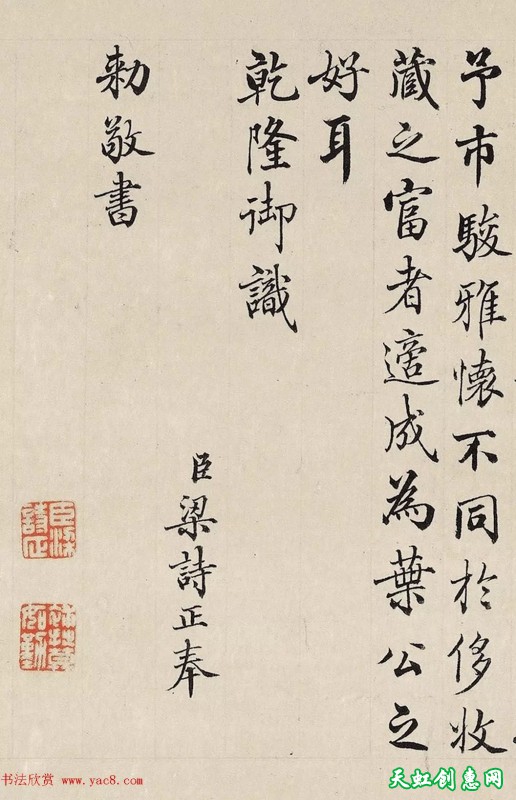 予市駿雅懷不同於侈收
藏之富者適成為葉公之
好耳
乾隆御識
臣梁詩正奉
勅敬書
臣梁
詩正
書法欣赏 www.yac8.com
天虹创惠网